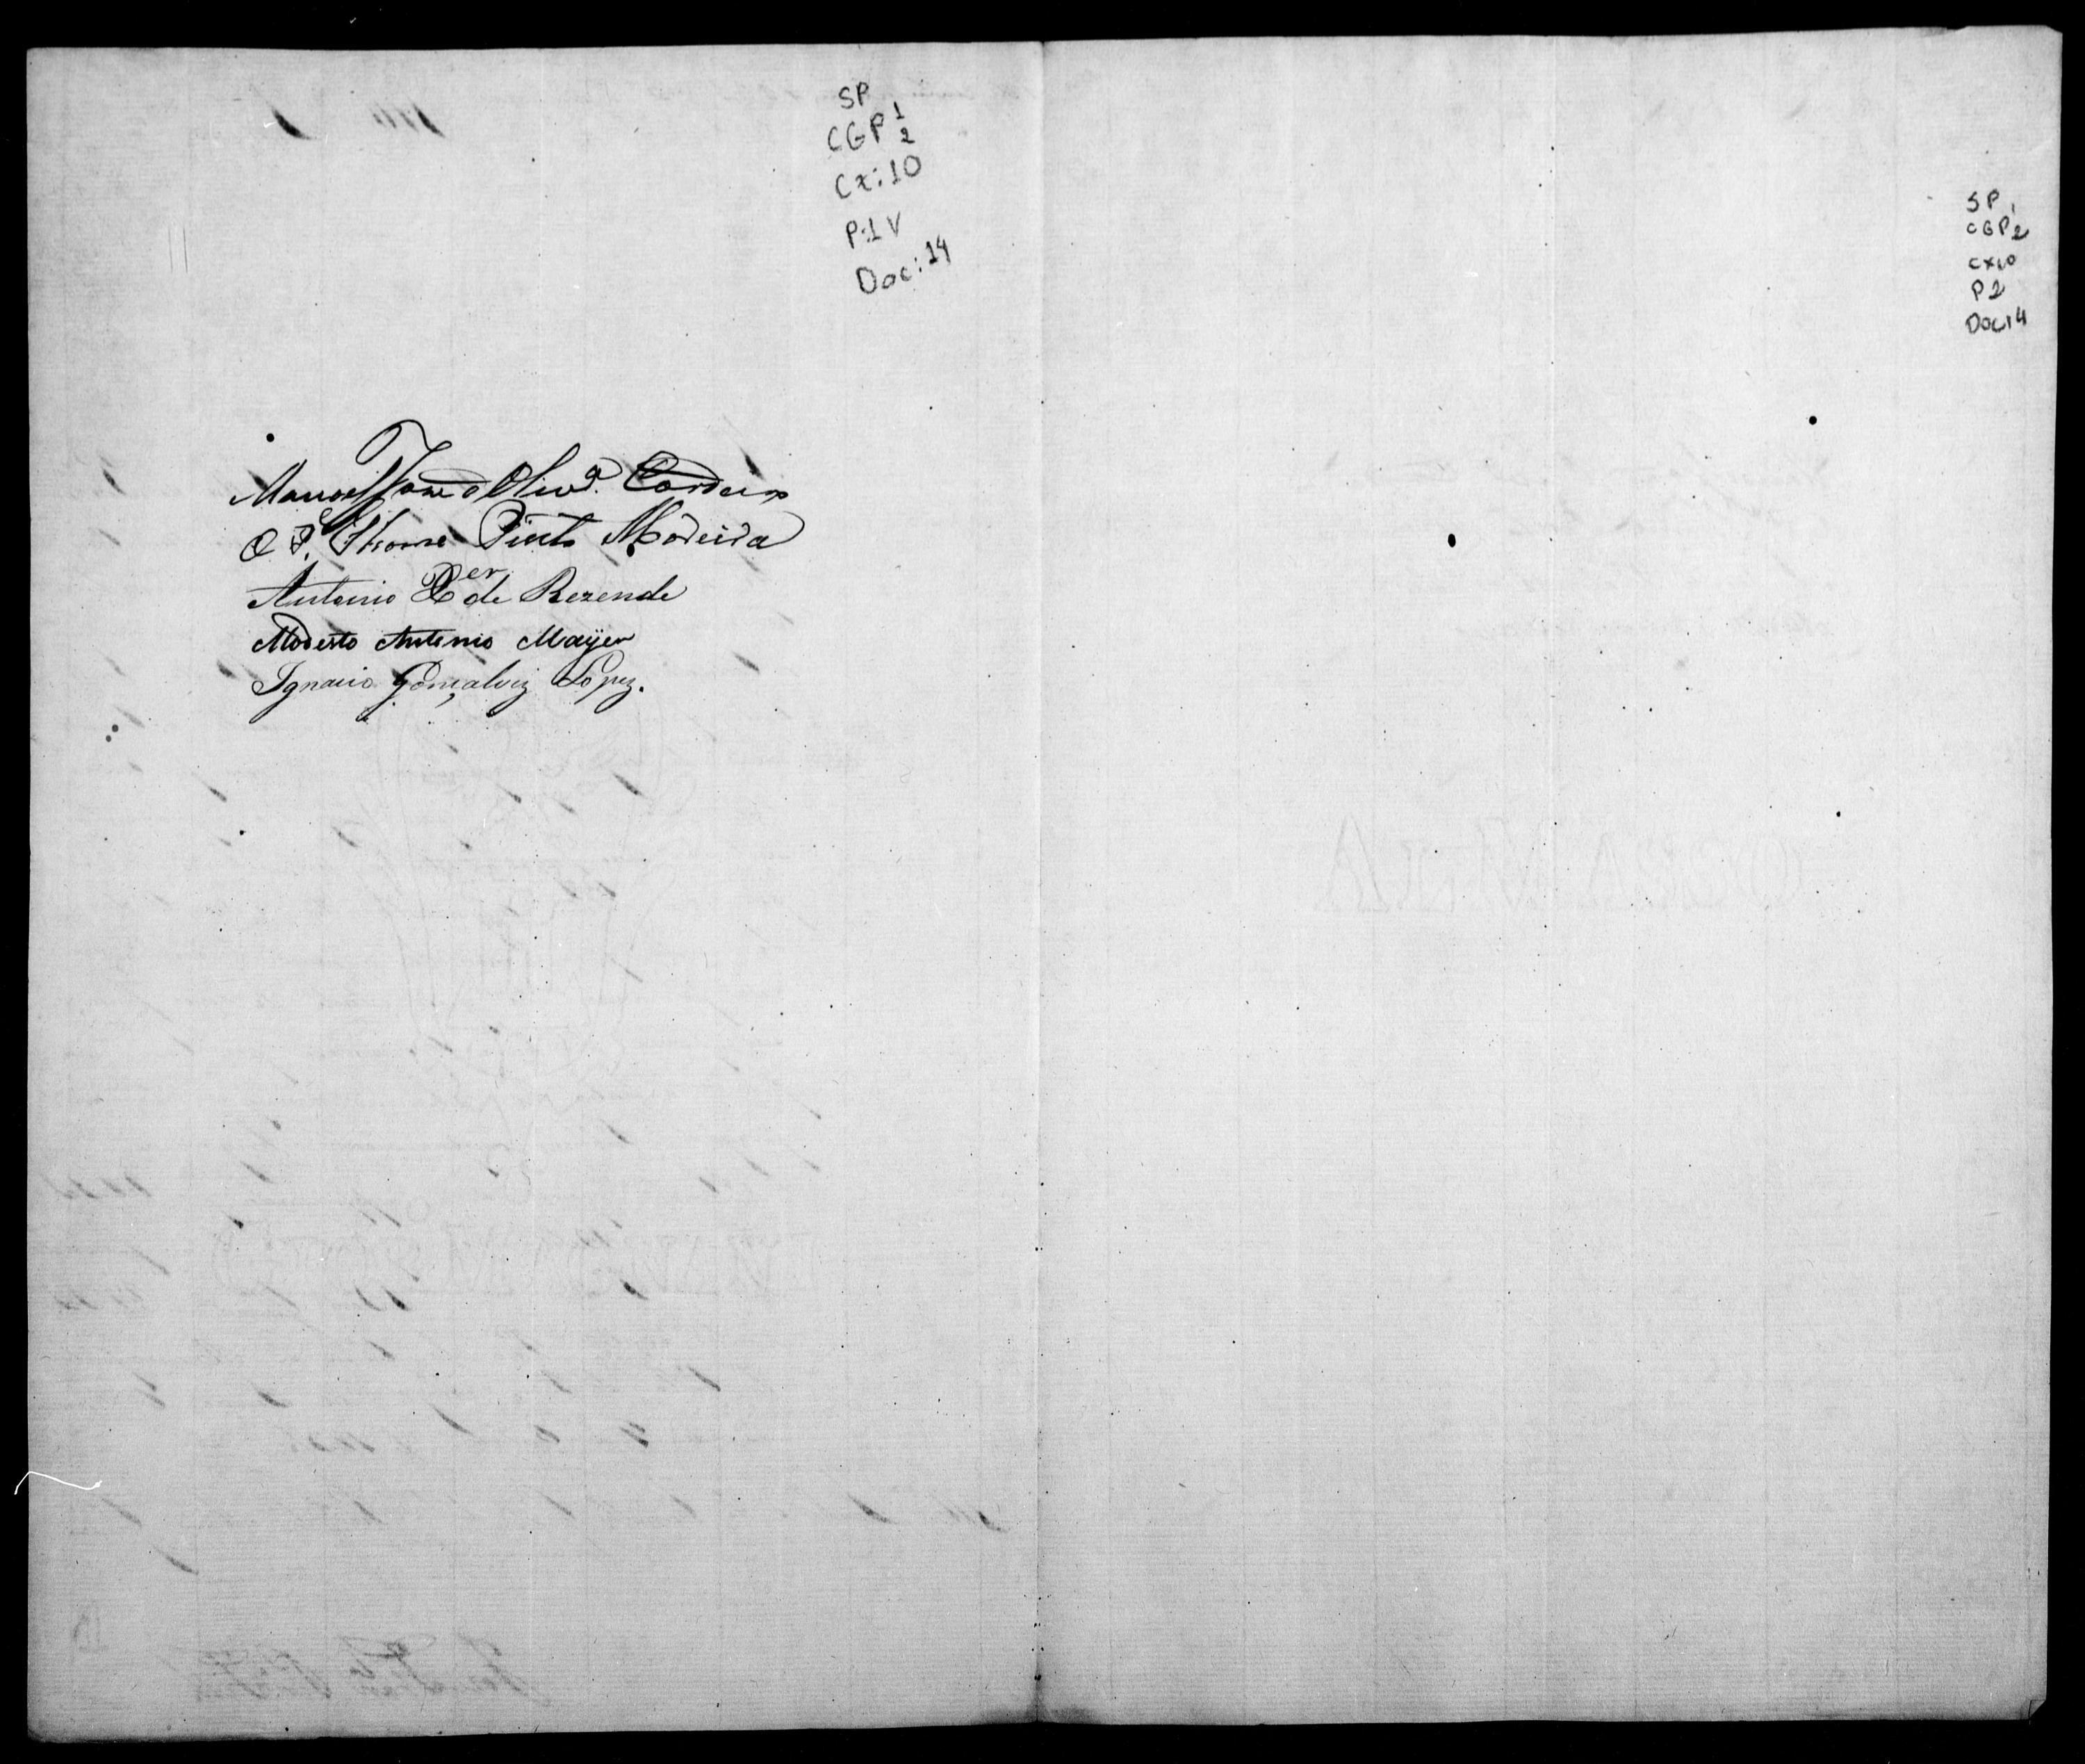 SP
CGP 1/2
Cx: 10
P: 1 V
Doc: 14
Manoel Jose d Olivrª. Cordeiro
O Pe. Thome Pinto Moreira
Antonio Xer de Rezende
Modesto Antonio Mayer
Ignacio Gonçalvez Lopez.
SP
CGP 1/2
CX 10
P2
Doc 14